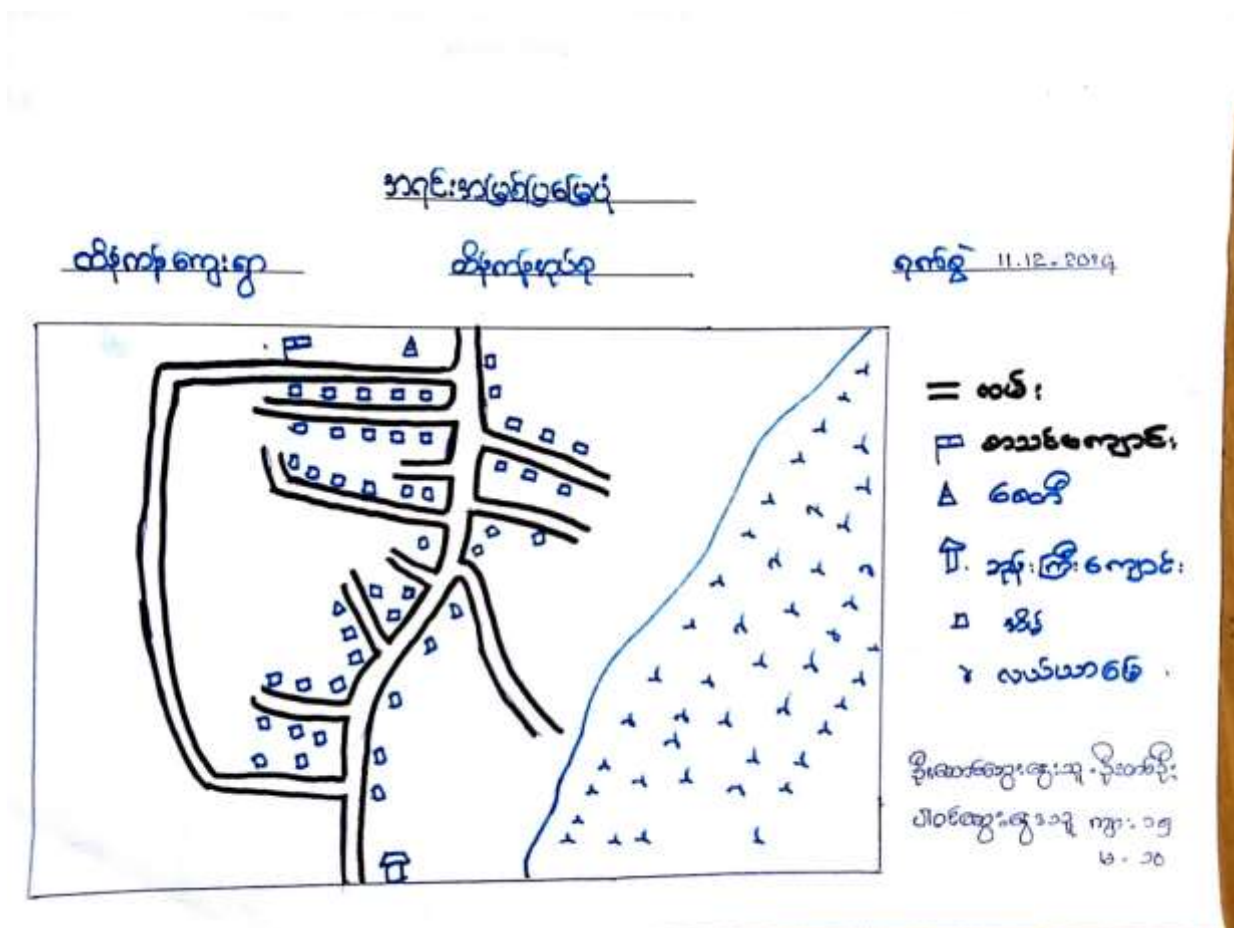 အရင်းအမြစ်ပြမြေပုံ
ထိန်ကန်ကျေးရွာ ထိန်ကန်အုပ်စု ရက်စွဲ 11.12.2019
လမ်း
စာသင်ကျောင်း
စေတီ
ဘုန်းကြီးကျောင်း
အိမ်
လယ်ယာမြေ
ဦးဆောင်ဆွေးနွေးသူ - ဦးတင်ဦး
ပါဝင်ဆွေးနွေးသူ ကျား - ၁၅
မ - ၁၀